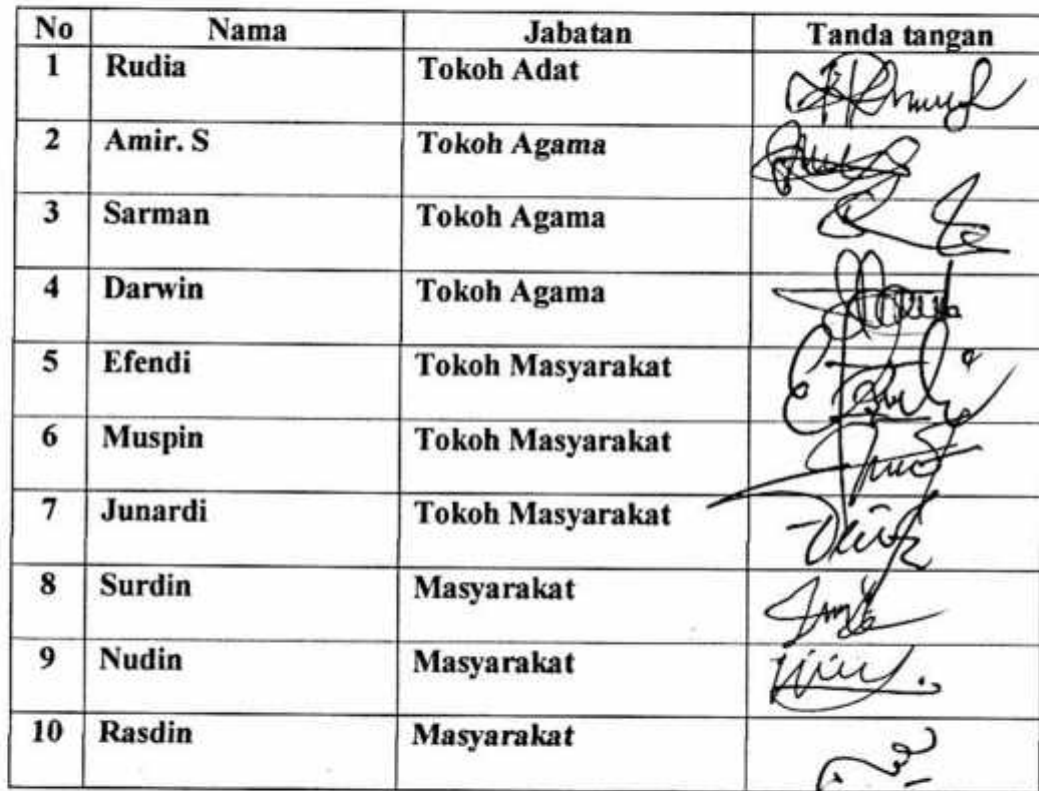 No Nama Jabatan Tanda tangan
1 Rudia Tokoh Adat
2 Amir. S Tokoh Agama
3 Sarman Tokoh Agama
4 Darwin Tokoh Agama
5 Efendi Tokoh Masyarakat
6 Muspin Tokoh Masyarakat
7 Junardi Tokoh Masyarakat
8 Surdin Masyarakat
9 Nudin Masyarakat
10 Rasdin Masyarakat